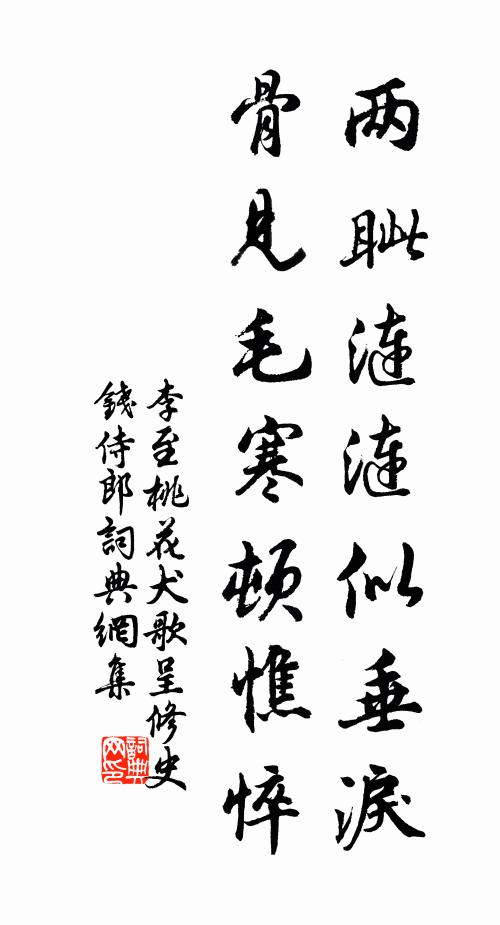 两眦涟涟似垂淚
骨見毛寒頓憔悴
李至桃花犬歌呈修史
錢侍郎詞典網集
詞典网印